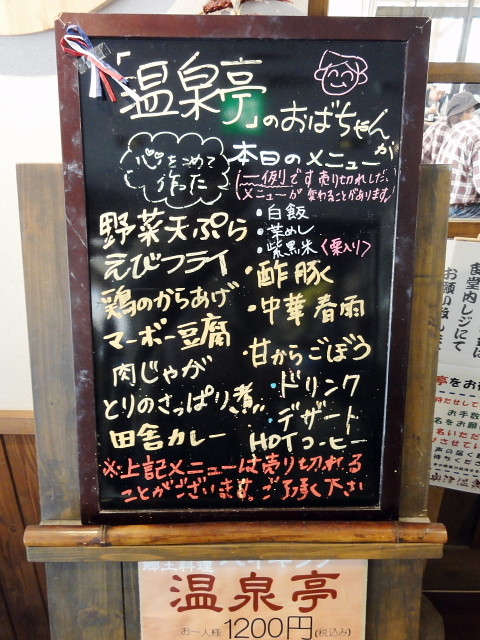 「温泉亭」のおばちゃんが
心をこめて
作った
本日のメニュー
(一例です売り切れしだい
メニューが変わることがあります)
・白飯
・菜めし
・紫黒米〈栗入り〉
野菜天ぷら
えびフライ
鶏のからあげ
マーボー豆腐
肉じゃが
とりのさっぱり煮
田舎カレー
・酢豚
・中華春雨
・甘からごぼう
・ドリンク
・デザート
HOTコーヒー
※上記メニューは売り切れる
ことがございます。ご了承下さい
郷土料理バイキング
温泉亭
お一人様 1200円(税込み)
食堂内レジにて
お願い致し
亭をお
お手数